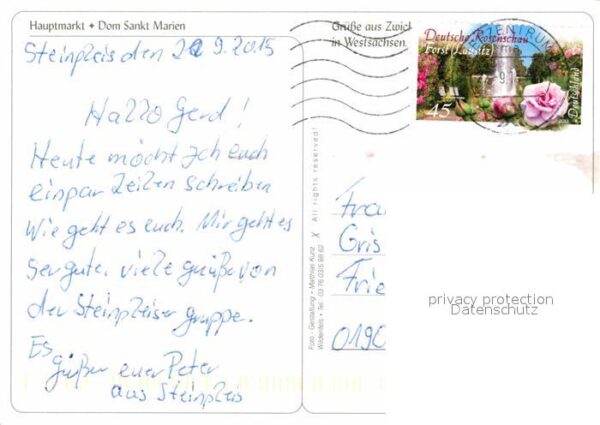 Hauptmarkt ✦ Dom Sankt Marien
Steinpleis den 2 9.2015
Hallo Gerd!
Heute möcht Ich euch
einpar Zeilen schreiben
Wie geht es euch. Mir geht es
Sergute. viele grüße von
der Steinpleiser gruppe.
Es
grüßen euer Peter
aus Steinpleis
Grüße aus Zwick
in Westsachsen.
Deutsche Rosenschau
Forst (Lausitz)
Deutschland
45
ZENTRUM
Foto · Gestaltung · Matthias Kunz
Wildenfels · Tel. 03 76 03/5 88 62
X All rights reserved!
Fra
Gris
Frie
0190
privacy protection
Datenschutz